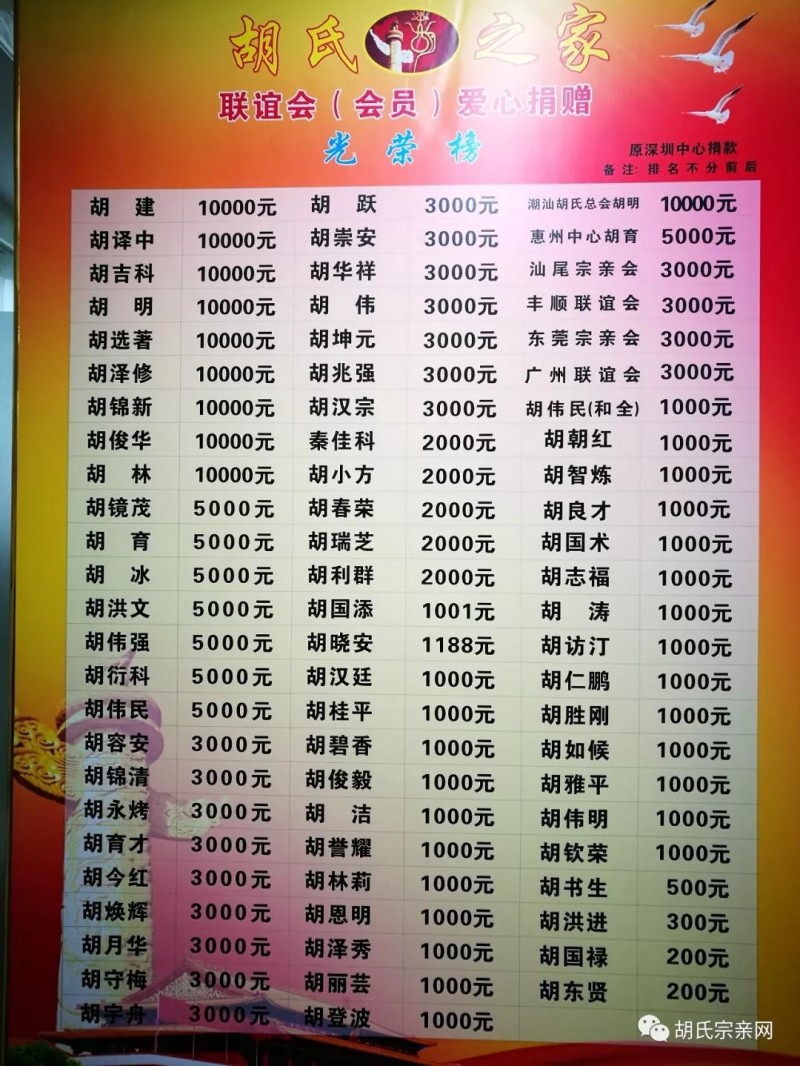 胡氏之家
联谊会（会员）爱心捐赠
光荣榜
原深圳中心捐款
备注：排名不分前后
胡建 10000元 胡跃 3000元 潮汕胡氏总会胡明 10000元
胡译中 10000元 胡崇安 3000元 惠州中心胡育 5000元
胡吉科 10000元 胡华祥 3000元 汕尾宗亲会 3000元
胡明 10000元 胡伟 3000元 丰顺联谊会 3000元
胡选著 10000元 胡坤元 3000元 东莞宗亲会 3000元
胡泽修 10000元 胡兆强 3000元 广州联谊会 3000元
胡锦新 10000元 胡汉宗 3000元 胡伟民(和全) 1000元
胡俊华 10000元 秦佳科 2000元 胡朝红 1000元
胡林 10000元 胡小方 2000元 胡智炼 1000元
胡镜茂 5000元 胡春荣 2000元 胡良才 1000元
胡育 5000元 胡瑞芝 2000元 胡国术 1000元
胡冰 5000元 胡利群 2000元 胡志福 1000元
胡洪文 5000元 胡国添 1001元 胡涛 1000元
胡伟强 5000元 胡晓安 1188元 胡访汀 1000元
胡衍科 5000元 胡汉廷 1000元 胡仁鹏 1000元
胡伟民 5000元 胡桂平 1000元 胡胜刚 1000元
胡容安 3000元 胡碧香 1000元 胡如候 1000元
胡锦清 3000元 胡俊毅 1000元 胡雅平 1000元
胡永烤 3000元 胡洁 1000元 胡伟明 1000元
胡育才 3000元 胡誉耀 1000元 胡钦荣 1000元
胡今红 3000元 胡林莉 1000元 胡书生 500元
胡焕辉 3000元 胡恩明 1000元 胡洪进 300元
胡月华 3000元 胡泽秀 1000元 胡国禄 200元
胡守梅 3000元 胡丽芸 1000元 胡东贤 200元
胡宇舟 3000元 胡登波 1000元
胡氏宗亲网